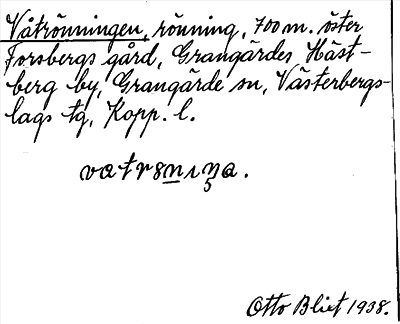 Våtrönningen, rönning, 700 m. öster
Forsbergs gård, Grangärdes Häst-
berg by, Grangärde sn, Västerbergs-
lags tg, Kopp. l.
Otto Blixt 1938.